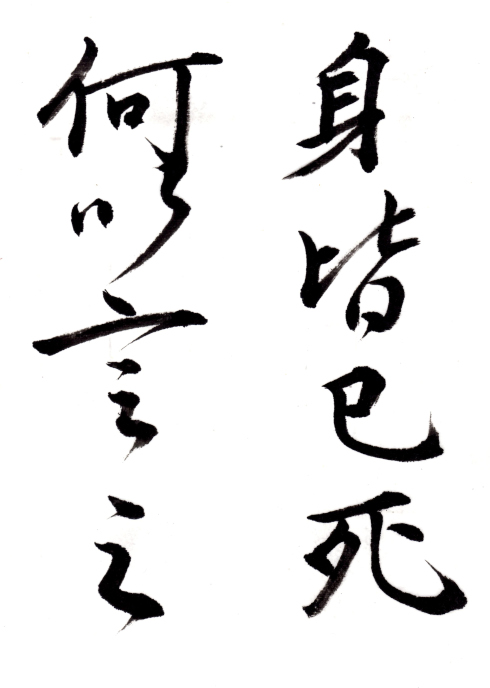 身皆已死
何以言之